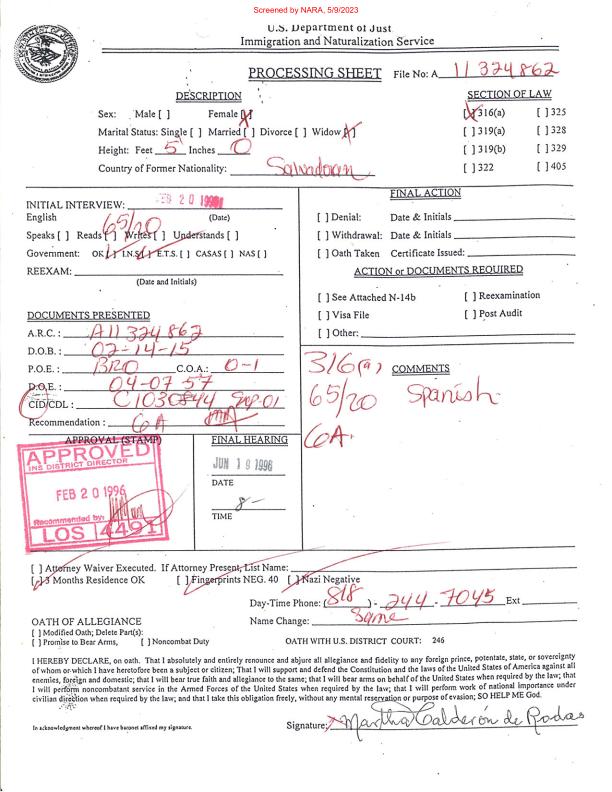 Screened by NARA, 5/9/2023
U.S. Department of Just
Immigration and Naturalization Service
PROCESSING SHEET File No: A 11 324 862
DESCRIPTION SECTION OF LAW
Sex: Male [ ] Female [X] [X] 316(a) [ ] 325
Marital Status: Single [ ] Married [ ] Divorce [ ] Widow [X] [ ] 319(a) [ ] 328
Height: Feet 5 Inches 0 [ ] 319(b) [ ] 329
Country of Former Nationality: Salvadoran [ ] 322 [ ] 405
INITIAL INTERVIEW: FEB 20 1996
English 65/20 (Date)
Speaks [ ] Reads [ ] Writes [ ] Understands [ ]
Government: OK [✓] I.N.S. [✓] E.T.S. [ ] CASAS [ ] NAS [ ]
REEXAM:
(Date and Initials)
FINAL ACTION
[ ] Denial: Date & Initials
[ ] Withdrawal: Date & Initials
[ ] Oath Taken Certificate Issued:
ACTION or DOCUMENTS REQUIRED
[ ] See Attached N-14b [ ] Reexamination
[ ] Visa File [ ] Post Audit
[ ] Other:
DOCUMENTS PRESENTED
A.R.C. : A11 324 862
D.O.B. : 02-14-15
P.O.E. : BRO C.O.A.: 0-1
D.O.E. : 04-07 57
CID/CDL : C1030844 Sep-01
Recommendation : 6A
316(a) COMMENTS
65/20 Spanish
6A.
APPROVAL (STAMP)
APPROVED
INS DISTRICT DIRECTOR
FEB 20 1996
Recommended by:
LOS 4491
FINAL HEARING
JUN 19 1996
DATE
8-
TIME
[ ] Attorney Waiver Executed. If Attorney Present, List Name:
[✓] 3 Months Residence OK [✓] Fingerprints NEG. 40 [✓] Nazi Negative
Day-Time Phone: (818) - 244 - 7045 Ext
Name Change: Same
OATH OF ALLEGIANCE
[ ] Modified Oath; Delete Part(s):
[ ] Promise to Bear Arms, [ ] Noncombat Duty OATH WITH U.S. DISTRICT COURT: 246
I HEREBY DECLARE, on oath. That I absolutely and entirely renounce and abjure all allegiance and fidelity to any foreign prince, potentate, state, or sovereignty
of whom or which I have heretofore been a subject or citizen; That I will support and defend the Constitution and the laws of the United States of America against all
enemies, foreign and domestic; that I will bear true faith and allegiance to the same; that I will bear arms on behalf of the United States when required by the law; that
I will perform noncombatant service in the Armed Forces of the United States when required by the law; that I will perform work of national importance under
civilian direction when required by the law; and that I take this obligation freely, without any mental reservation or purpose of evasion; SO HELP ME God.
In acknowledgment whereof I have hereunto affixed my signature. Signature: Martha Calderón de Rodas